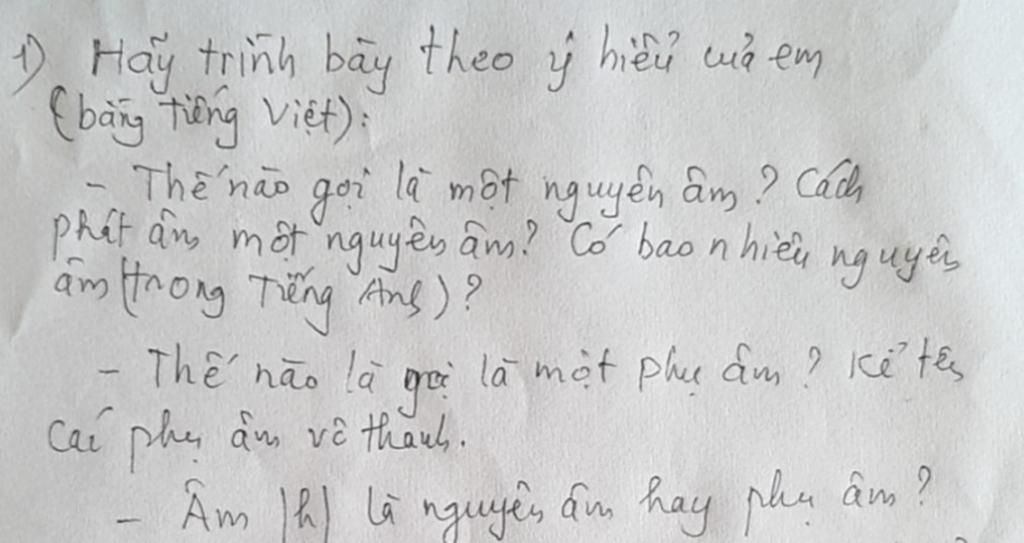 1) Hãy trình bày theo ý hiểu của em
(bằng Tiếng Việt):
- Thế nào gọi là một nguyên âm? Cách
phát âm một nguyên âm? Có bao nhiêu nguyên
âm (trong Tiếng Anh)?
- Thế nào là gọi là một phụ âm? Kể tên
các phụ âm vô thanh.
- Âm |h| là nguyên âm hay phụ âm?